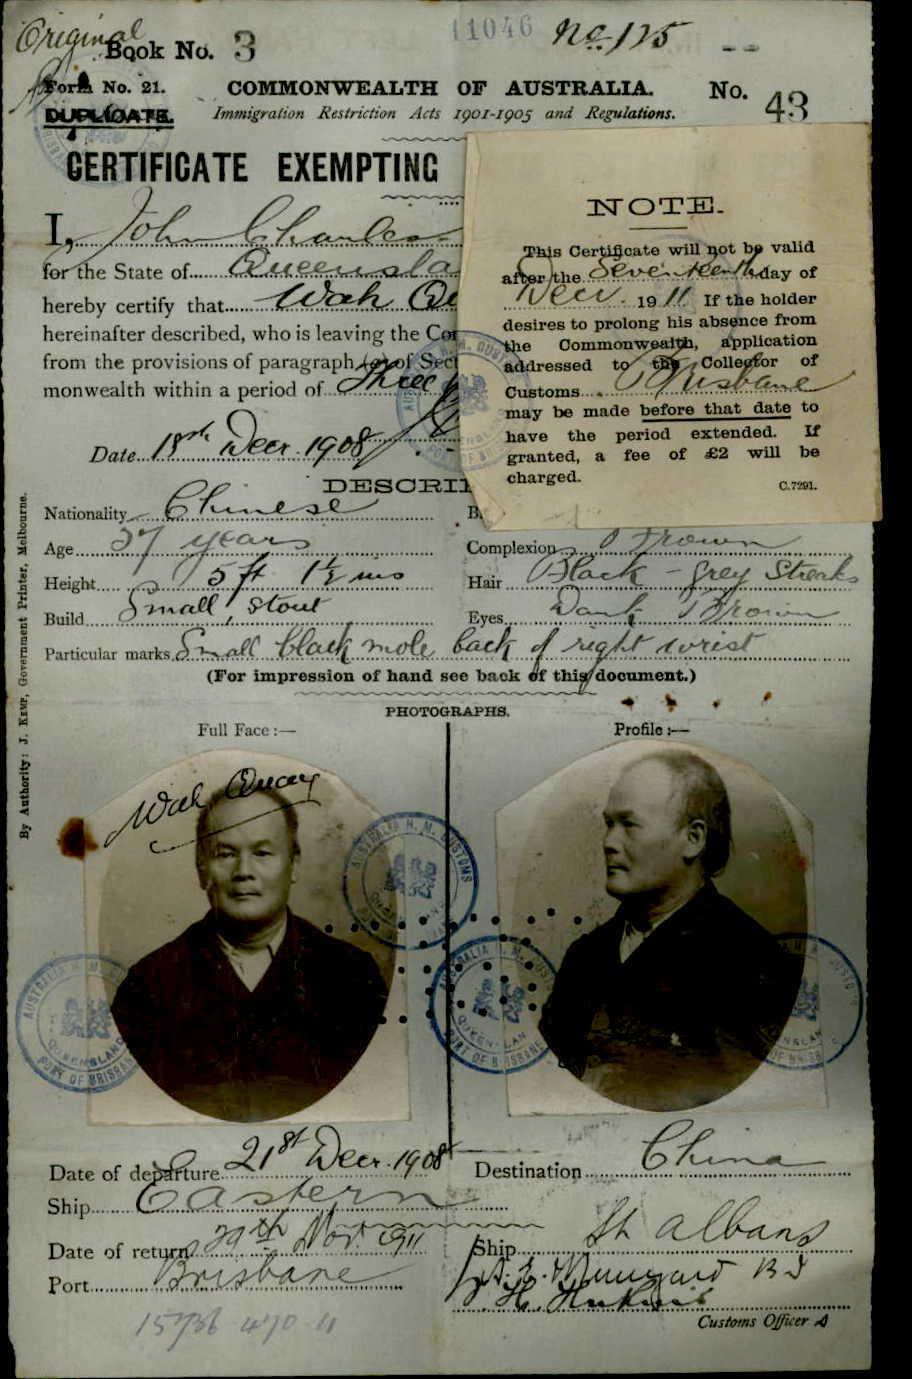 Original
Book No. 3
11046
No. 125
Form No. 21.
COMMONWEALTH OF AUSTRALIA.
No. 43
DUPLICATE.
Immigration Restriction Acts 1901-1905 and Regulations.
CERTIFICATE EXEMPTING
I, John Charles
for the State of Queensla
hereby certify that Wah Qu
hereinafter described, who is leaving the Co
from the provisions of paragraph (a) of Sect
monwealth within a period of three
Date 18th Decr. 1908
NOTE.
This Certificate will not be valid
after the Seventeenth day of
Decr. 1911 If the holder
desires to prolong his absence from
the Commonwealth, application
addressed to the Collector of
Customs Brisbane
may be made before that date to
have the period extended. If
granted, a fee of £2 will be
charged.
C.7291.
DESCRI
Nationality Chinese
B
Age 57 years
Complexion Brown
Height 5 ft 1½ ins
Hair Black - Grey Streaks
Build Small, stout
Eyes Dark Brown
Particular marks Small black mole back of right wrist
(For impression of hand see back of this document.)
PHOTOGRAPHS.
Full Face :—
Profile :—
Wah Quay
By Authority: J. KEMP, Government Printer, Melbourne.
AUSTRALIA H. M. CUSTOMS
QUEENSLAND
PORT OF BRISBANE
Date of departure 21st Decr. 1908
Destination China
Ship Eastern
Date of return 29th Nov. 1911
Ship St Albans
Port Brisbane
Customs Officer